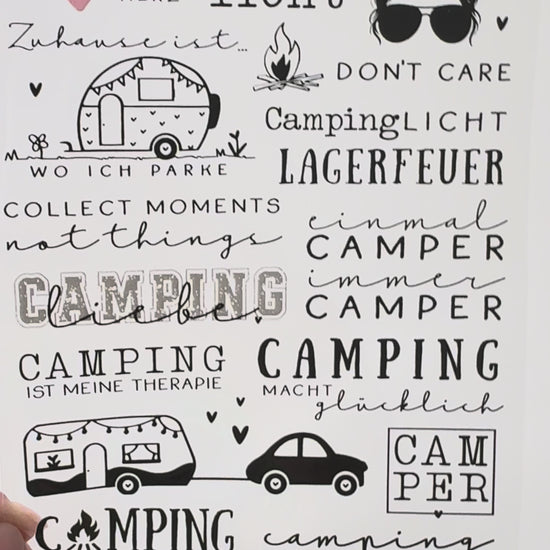 Zuhause ist...
WO ICH PARKE
DON'T CARE
CampingLICHT
LAGERFEUER
COLLECT MOMENTS
not things
einmal
CAMPER
immer
CAMPER
CAMPING
liebe
CAMPING
IST MEINE THERAPIE
CAMPING
MACHT
glücklich
CAM
PER
CAMPING
camping